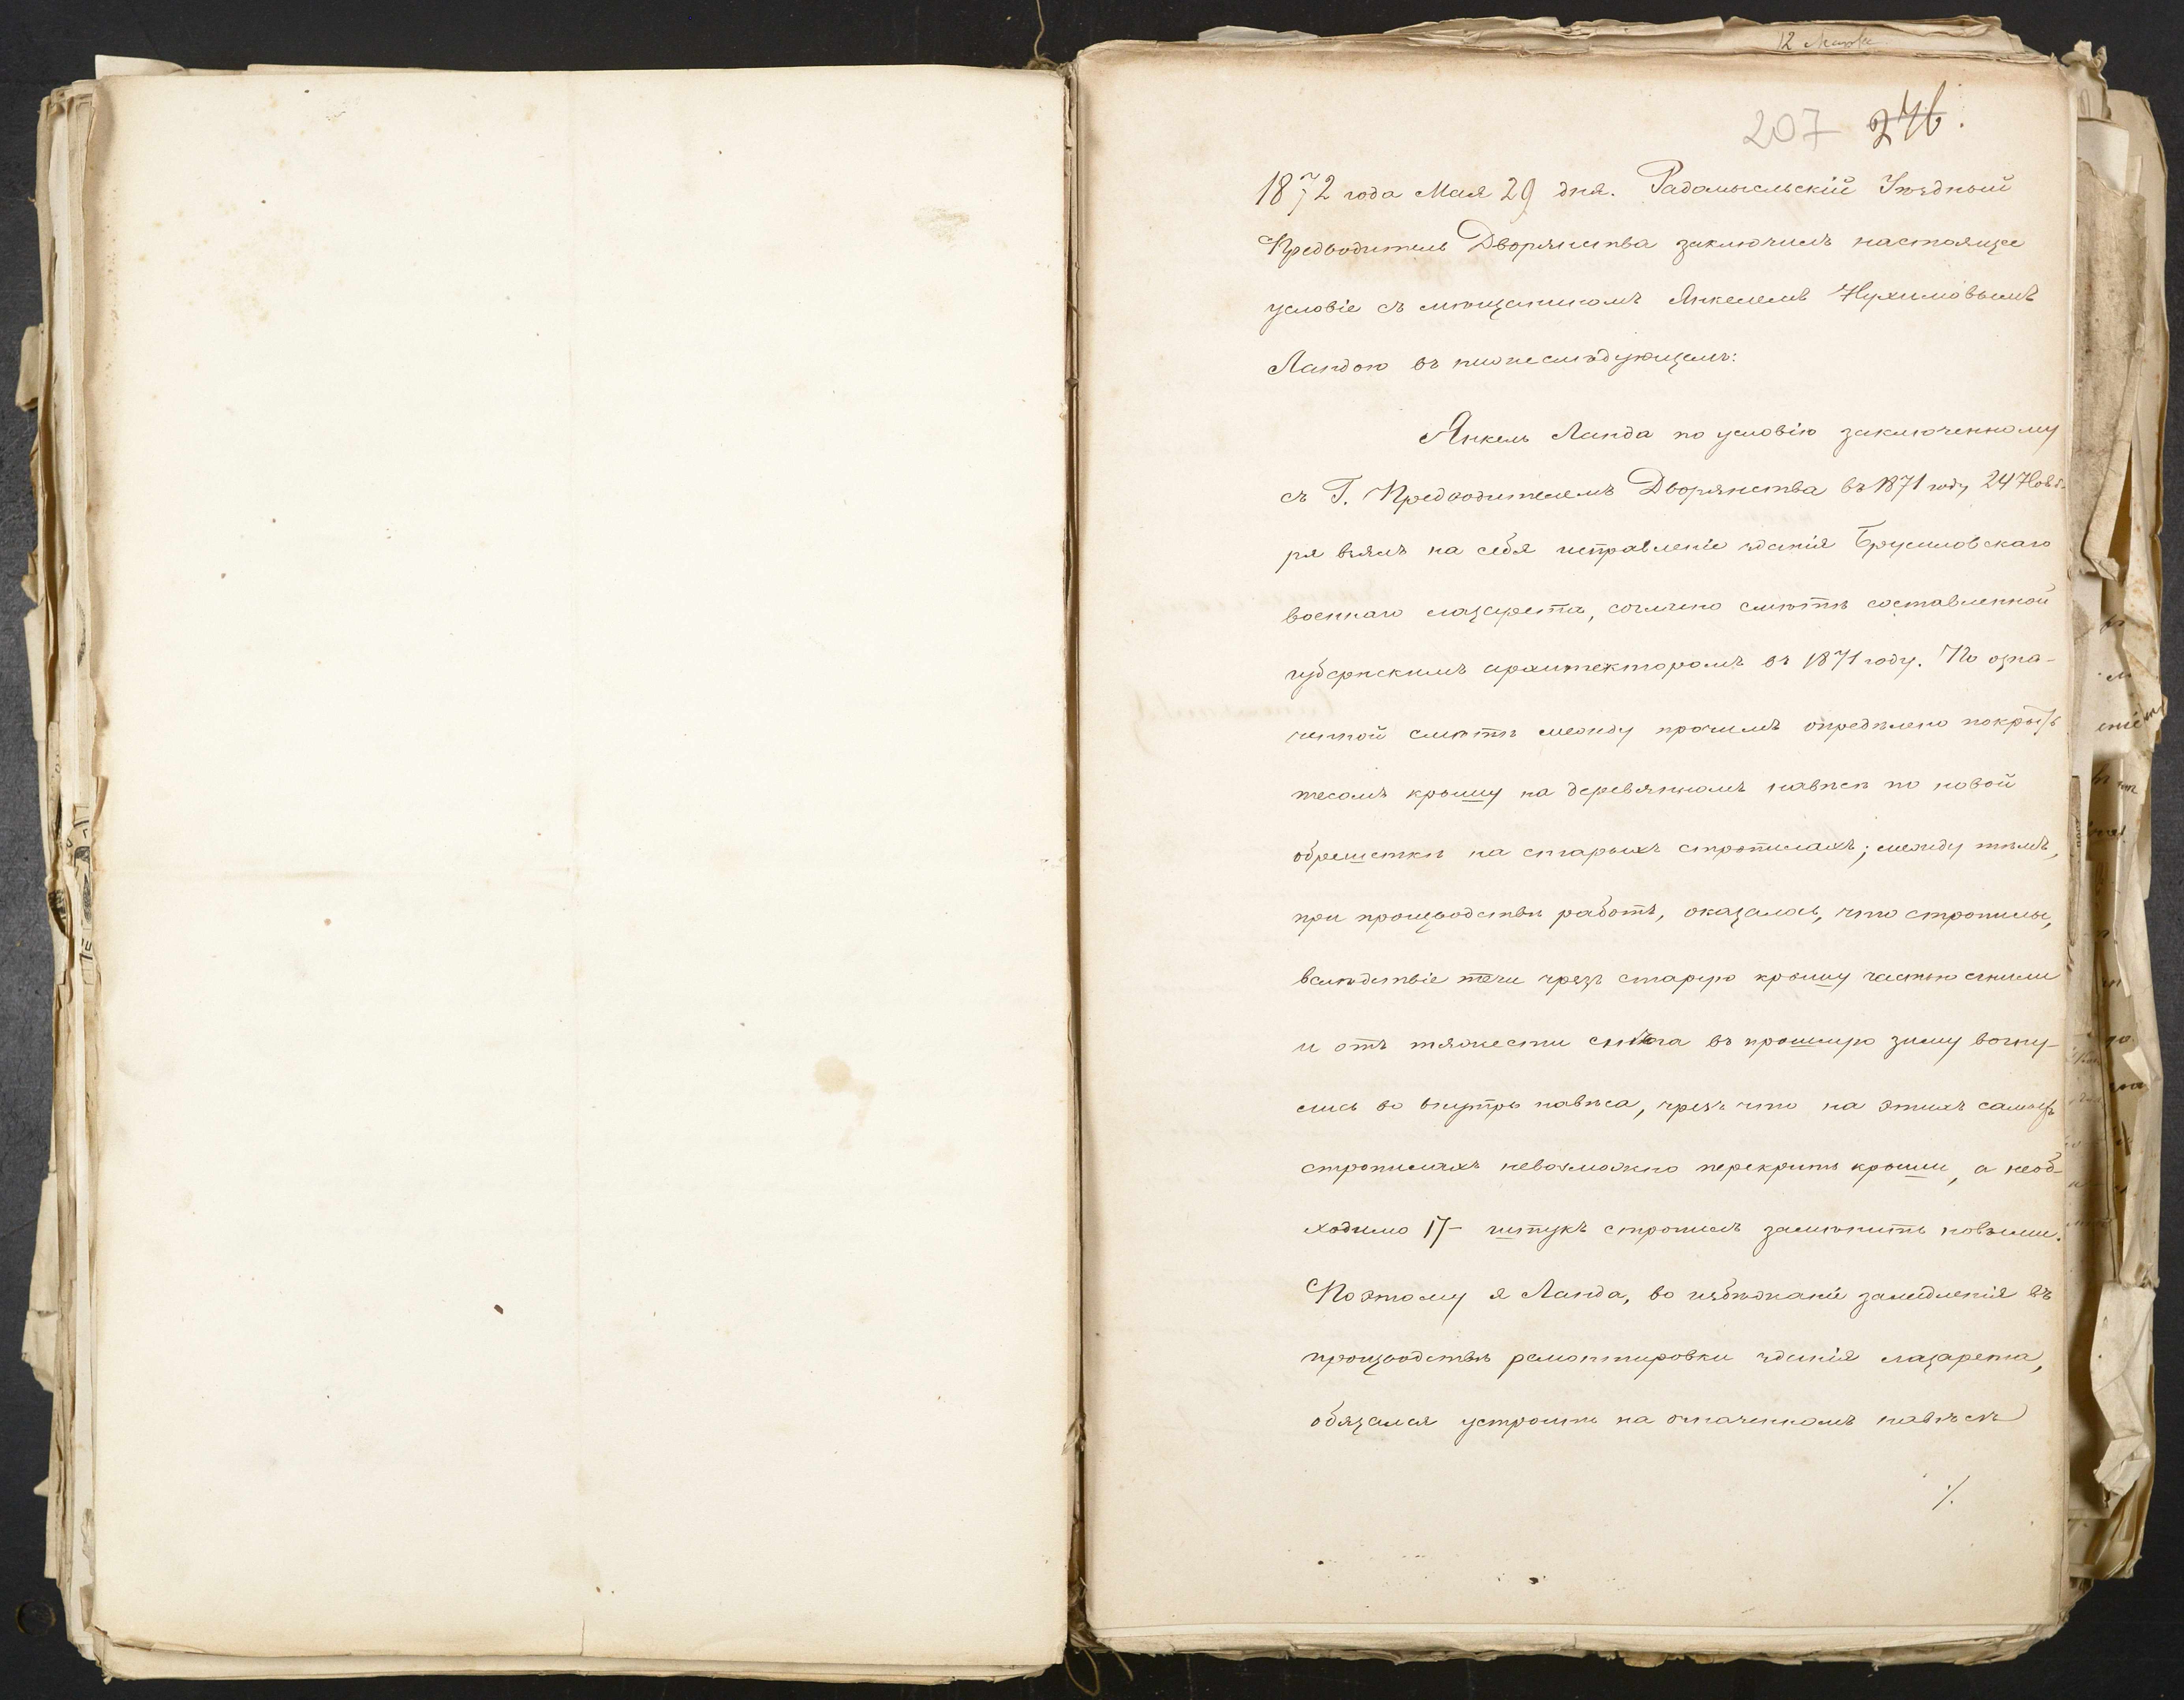 12 Марта
207 246.
1872 года Мая 29 дня. Радомысльскій Уѣздный
Предводитель Дворянства заключилъ настоящее
условіе съ мѣщаниномъ Янкелемъ Нухимовымъ
Ландою въ нижеслѣдующемъ:
Янкель Ланда по условію заключенному
съ Г. Предводителемъ Дворянства въ 1871 году 24 Нояб-
ря взялъ на себя исправленіе зданія Брусиловскаго
военнаго лазарета, согласно смѣтѣ составленной
губернскимъ архитекторомъ въ 1871 году. По озна-
ченной смѣтѣ между прочимъ опредѣлено покрыть
тесомъ крышу на деревянномъ навѣсѣ по новой
обрешеткѣ на старыхъ стропилахъ; между тѣмъ,
при производствѣ работъ, оказалось, что стропилы,
вслѣдствіе течи чрезъ старую крышу частью сгнили
и отъ тяжести снѣга въ прошлую зиму вогну-
лись во внутрь навѣса, чрезъ что на этихъ самыхъ
стропилахъ невозможно перекрить крыши, а необ-
ходимо 17 штукъ стропилъ замѣнить новыми.
Поэтому я Ланда, во избѣжаніе замедленія въ
производствѣ ремонтировки зданія лазарета,
обязался устроить на означенномъ навѣсѣ
./.